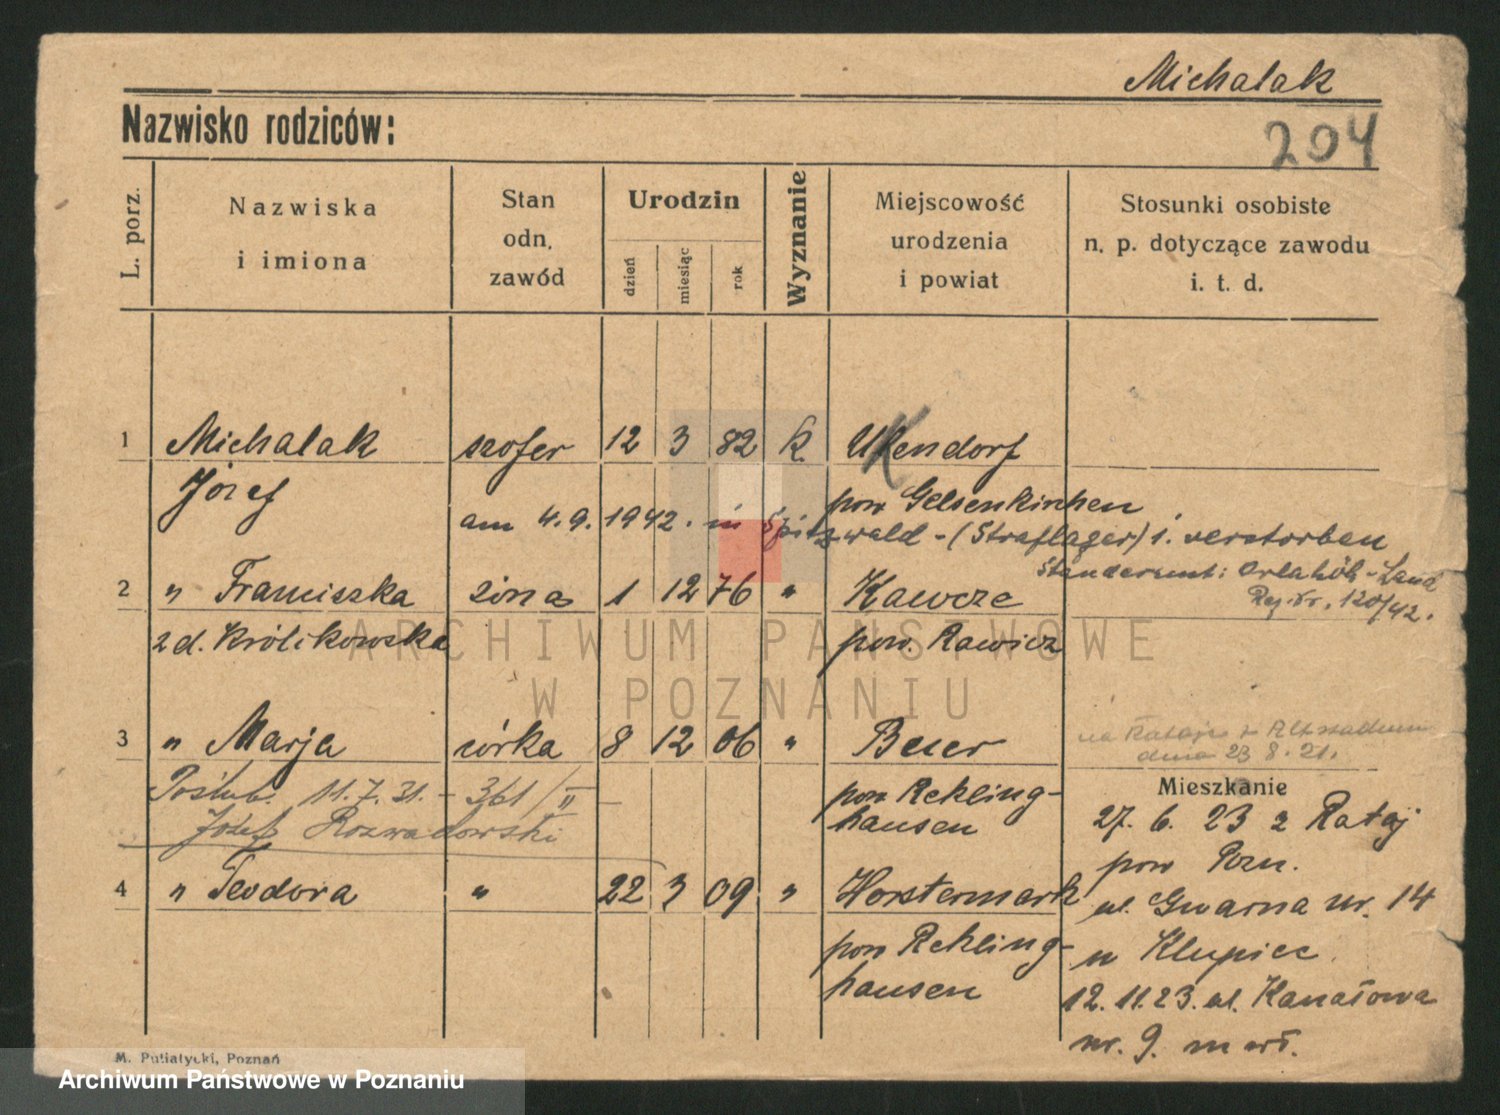 Michalak
Nazwisko rodziców:
204
L. porz.
Nazwiska
i imiona
Stan
odn.
zawód
Urodzin
dzień
miesiąc
rok
Wyznanie
Miejscowość
urodzenia
i powiat
Stosunki osobiste
n. p. dotyczące zawodu
i. t. d.
1 Michalak szofer 12 3 82 k. Ukendorf
Józef pow Gelsenkirchen
am 4.9.1942. in Spitzwald-(Straflager) i. verstorben
Standesamt:
Reg. Nr. 120/42.
2 " Franciszka żona 1 12 76 " Kawcze
z d. Królikowska pow. Rawicz
3 " Marja córka 8 12 06 " Beuer
dnia 23 8. 21.
Poślub. 11.7.31. - 361/II - pow Rekling-
hausen
Józef Rozwadowski
Mieszkanie
27. 6. 23 z Rataj
pow Pozn.
4 " Teodora " 22 3 09 " Horstermark
ul. Gwarna nr. 14
pow Rekling-
hausen
u Klupiec.
12. 11. 23. ul. Kanałowa
nr. 9. m wł.
M. Putiatycki, Poznań
ARCHIWUM PAŃSTWOWE
W POZNANIU
Archiwum Państwowe w Poznaniu